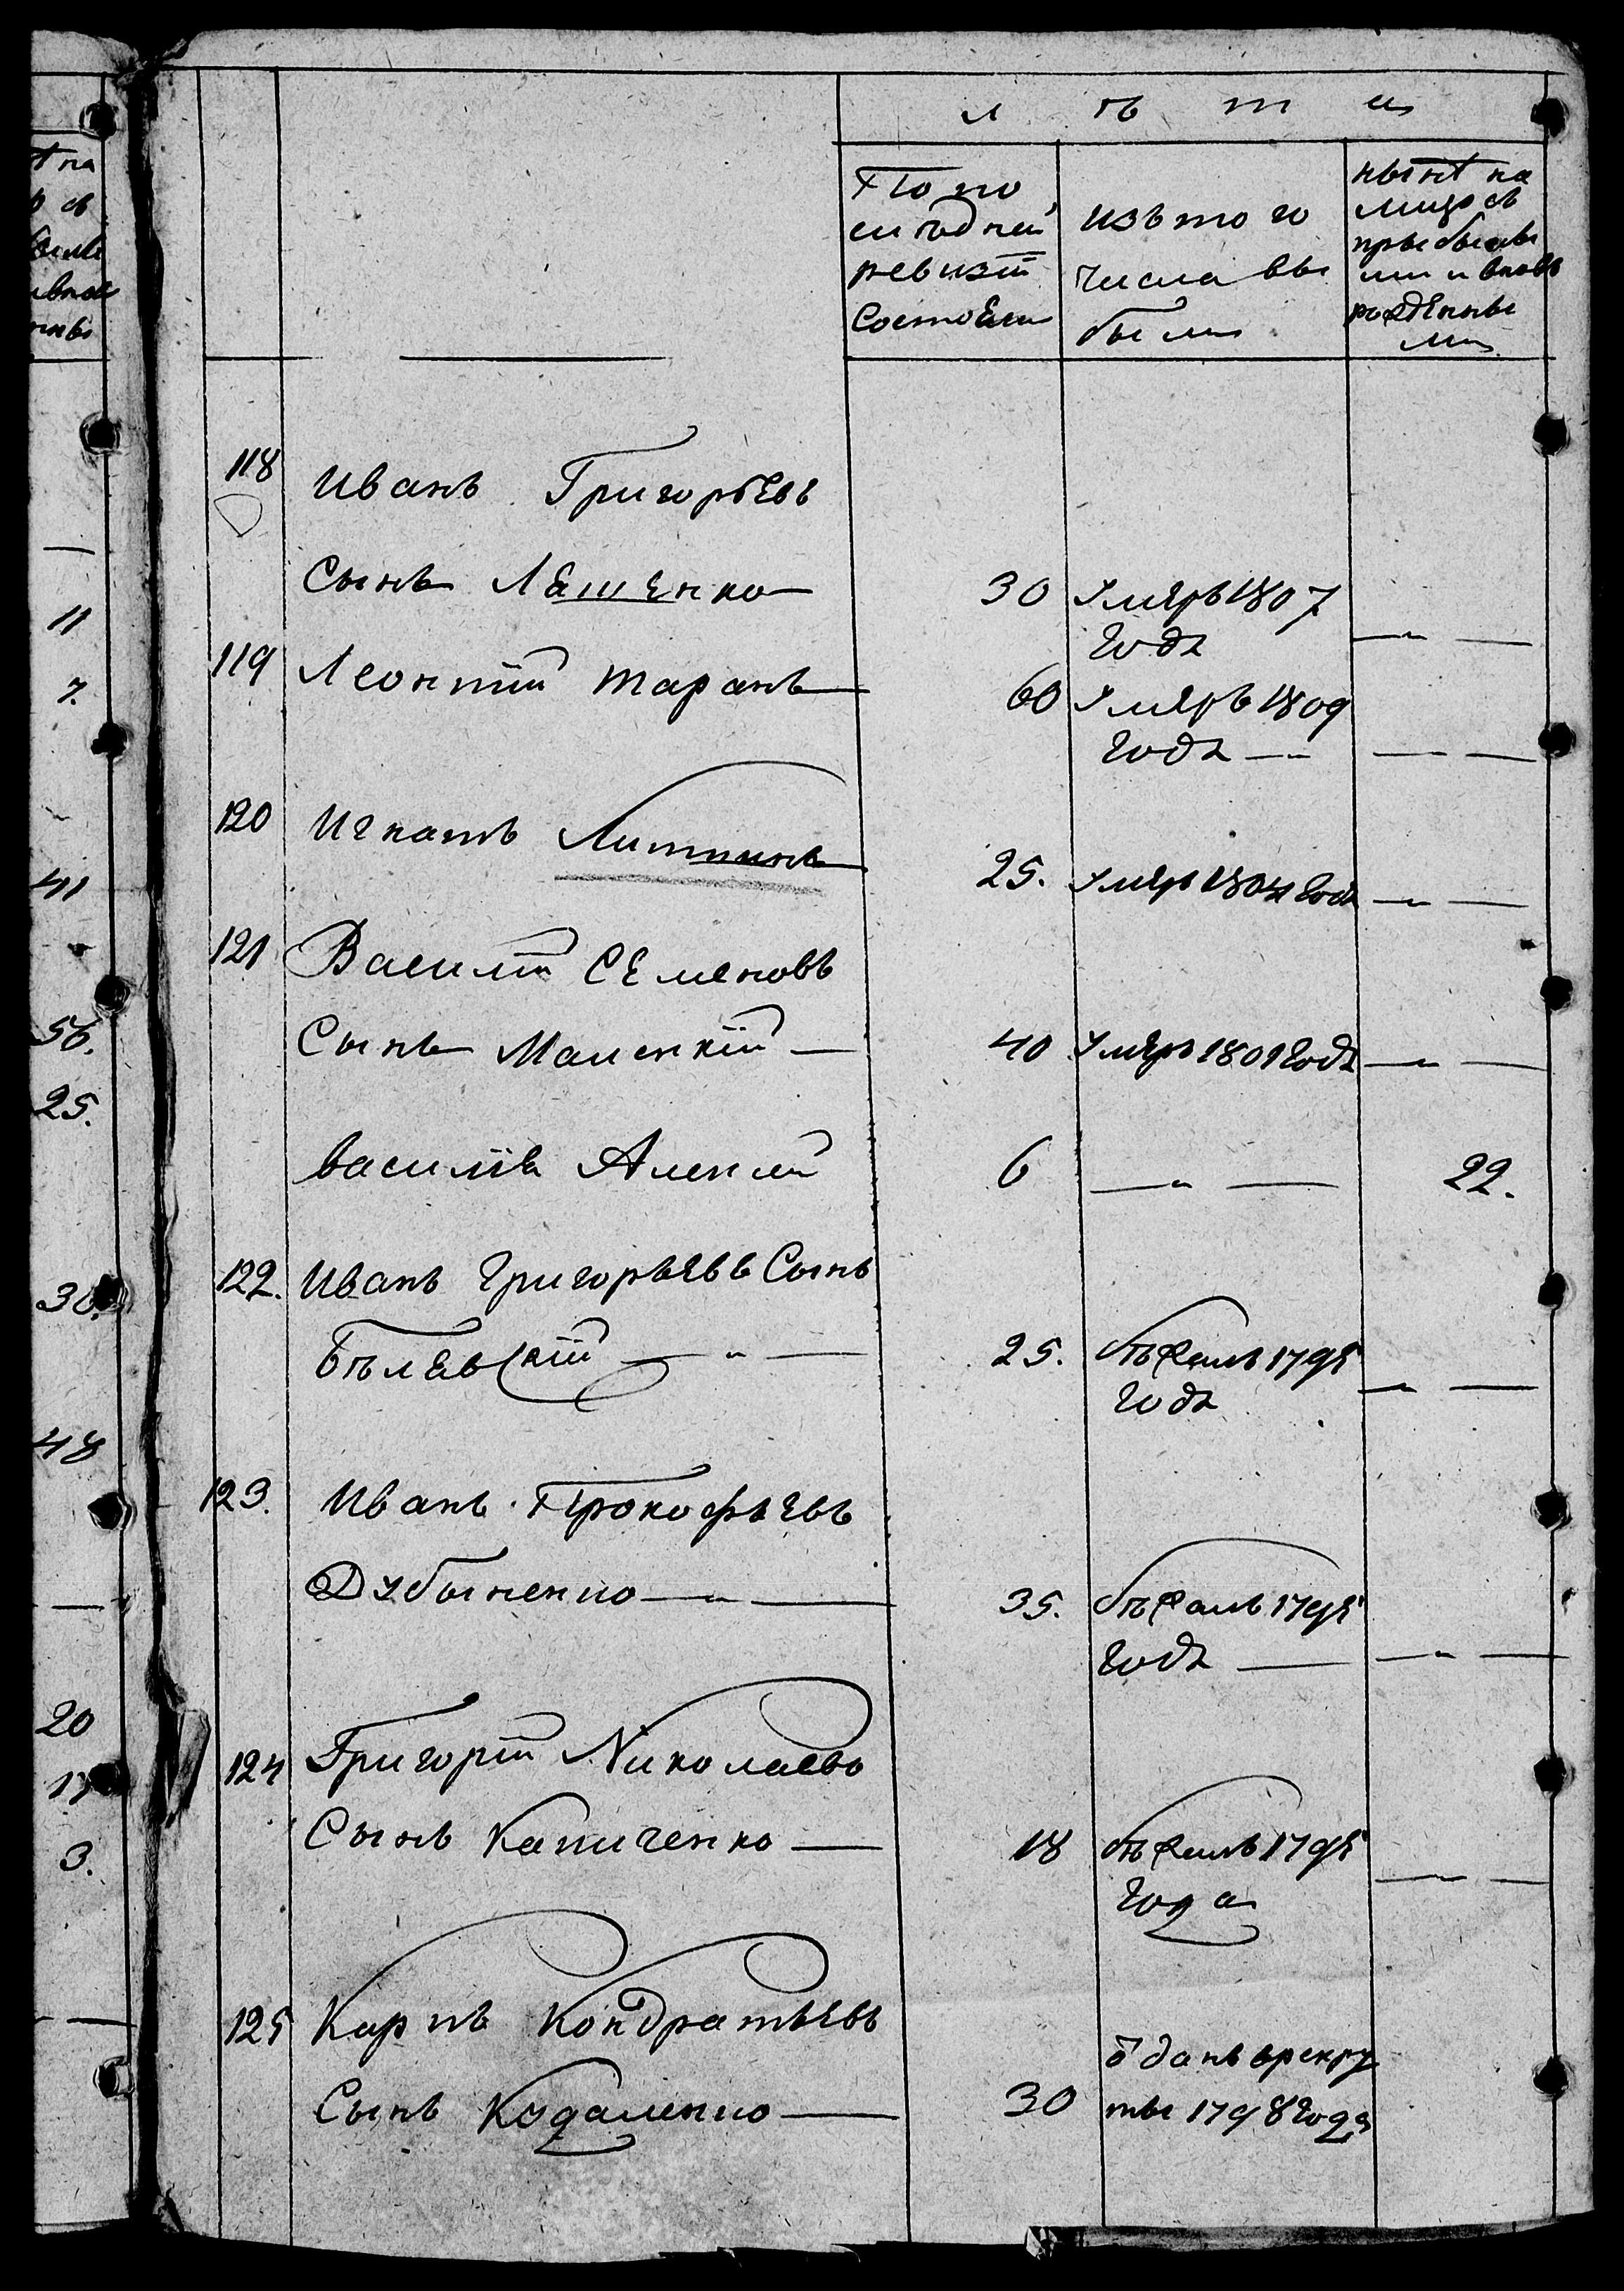 лѣта
По по
слѣдней
ревизіи
состояли
изъ того
числа вы
были
нынѣ на
лицо съ
прибывы
ми и вновь
рожденны
ми
118 Иванъ Григорьевъ
Сынъ Лѣшенко 30 Умеръ 1807
Года
119 Леонтій таранъ 60 Умеръ 1809
Года
120 Игнатъ Литвинъ 25. Умеръ 1804 Года
121 Василій Семеновъ
Сынъ Маленкій 40 Умеръ 1801 Года
василія Алексѣй 6 22.
122. Иванъ Григорьевъ Сынъ
Бѣлевскій 25. бѣжалъ 1795
Года
123. Иванъ Прокофьевъ
Дубыненко 35. бѣжалъ 1795
Года
124 Григорій Николаевъ
Сынъ Капиченко 18 бѣжалъ 1795
Года
125 Карпъ Кондратьевъ
Сынъ Кодаленко 30 ѿданъ врекру
ты 1798 Года
11
7.
41
56.
25.
30.
48
20
17
3.